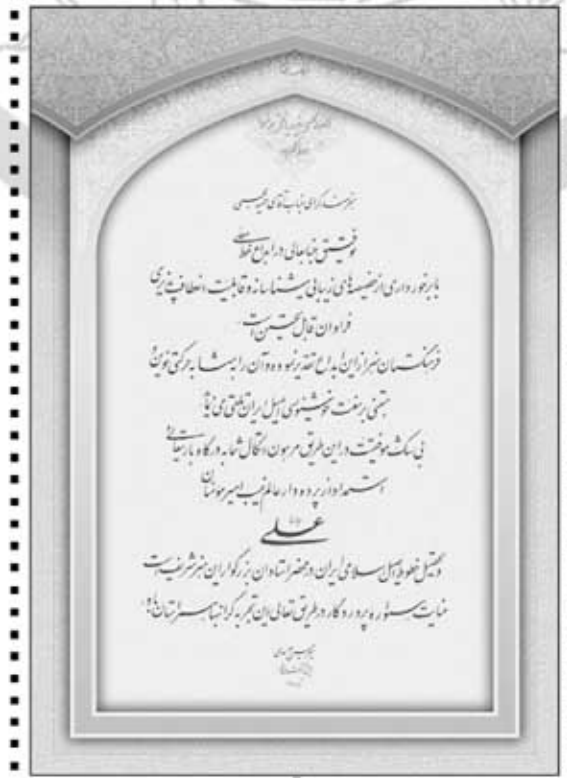 هنرمند گرامی جناب آقای حمید عجمی
توفیق جنابعالی در ابداع خط معلی
با برخورداری از خصیصه‌های زیبایی شناسانه و قابلیت انعطاف پذیری
فراوان قابل تحسین است.
فرهنگستان هنر از این ابداع تقدیر نموده و آن را به مثابه حرکتی نوین
مبتنی بر سنت خوشنویسی اصیل ایران تلقی می نماید
بی شک موفقیت در این طریق مرهون اتکال شما به درگاه باریتعالی و
استمداد از پرده دار عالم غیب امیر مومنان
علی
و تحصیل خطوط اصیل اسلامی ایران در محضر استادان بزرگوار این هنر شریف است
عنایت پروردگار در طریق تعالی این تجربه گرانبها باد.